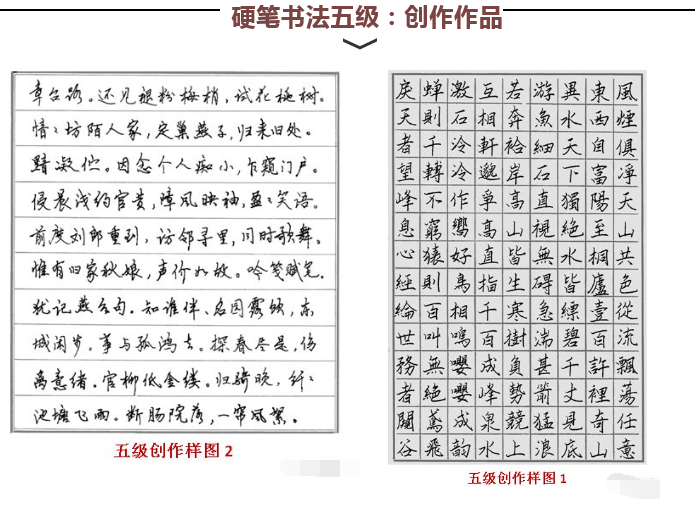 硬笔书法五级：创作作品
章台路。还见褪粉梅梢，试花桃树。
愔：坊陌人家，定巢燕子，归来旧处。
黯凝伫。因念个人痴小，乍窥门户。
侵晨浅约宫黄，障风映袖，盈：笑语。
前度刘郎重到，访邻寻里，同时歌舞。
惟有旧家秋娘，声价如故。吟笺赋笔，
犹记燕台句。知谁伴、名园露饮，东
城闲步。事与孤鸿去。探春尽是，伤
离意绪。官柳低金缕。归骑晚，纤：
池塘飞雨。断肠院落，一帘风絮。
五级创作样图 2
風煙俱凈天山共色從流飄蕩任意
東西自富陽至桐廬壹百許裡奇山
異水天下獨絕水皆縹碧千丈見底
游魚細石直視無礙急湍甚箭猛浪
若奔裕岸高山皆生寒樹負勢競上
互相軒邈爭高直指千百成峰泉水
激石冷冷作響好鳥相鳴嚶嚶成韵
蟬則千轉不窮猿則百叫無絕鳶飛
戾天者望峰息心經綸世務者闚谷
五级创作样图 1